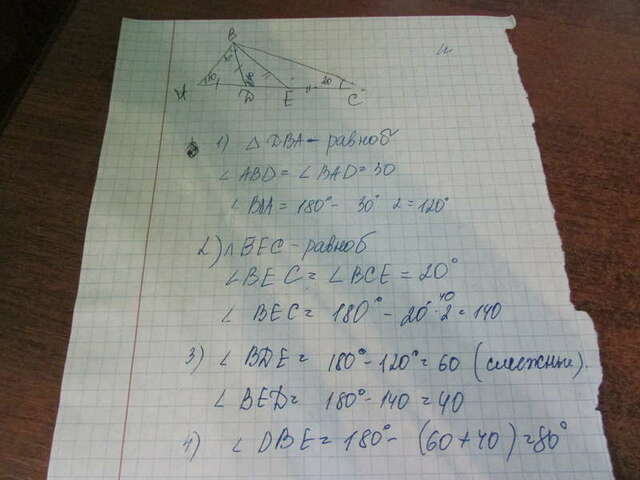 B
30 20
A D E C
1) △ DBA - равноб
∠ ABD = ∠ BAD = 30
∠ BДA = 180° - 30° 2 = 120°
2) △ BEC - равноб
∠ BEC = ∠ BCE = 20°
40
∠ BEC = 180° - 20° · 2 = 140
3) ∠ BDE = 180° - 120° = 60 (смежные).
∠ BED = 180° - 140 = 40
4) ∠ DBE = 180° - (60 + 40) = 80°